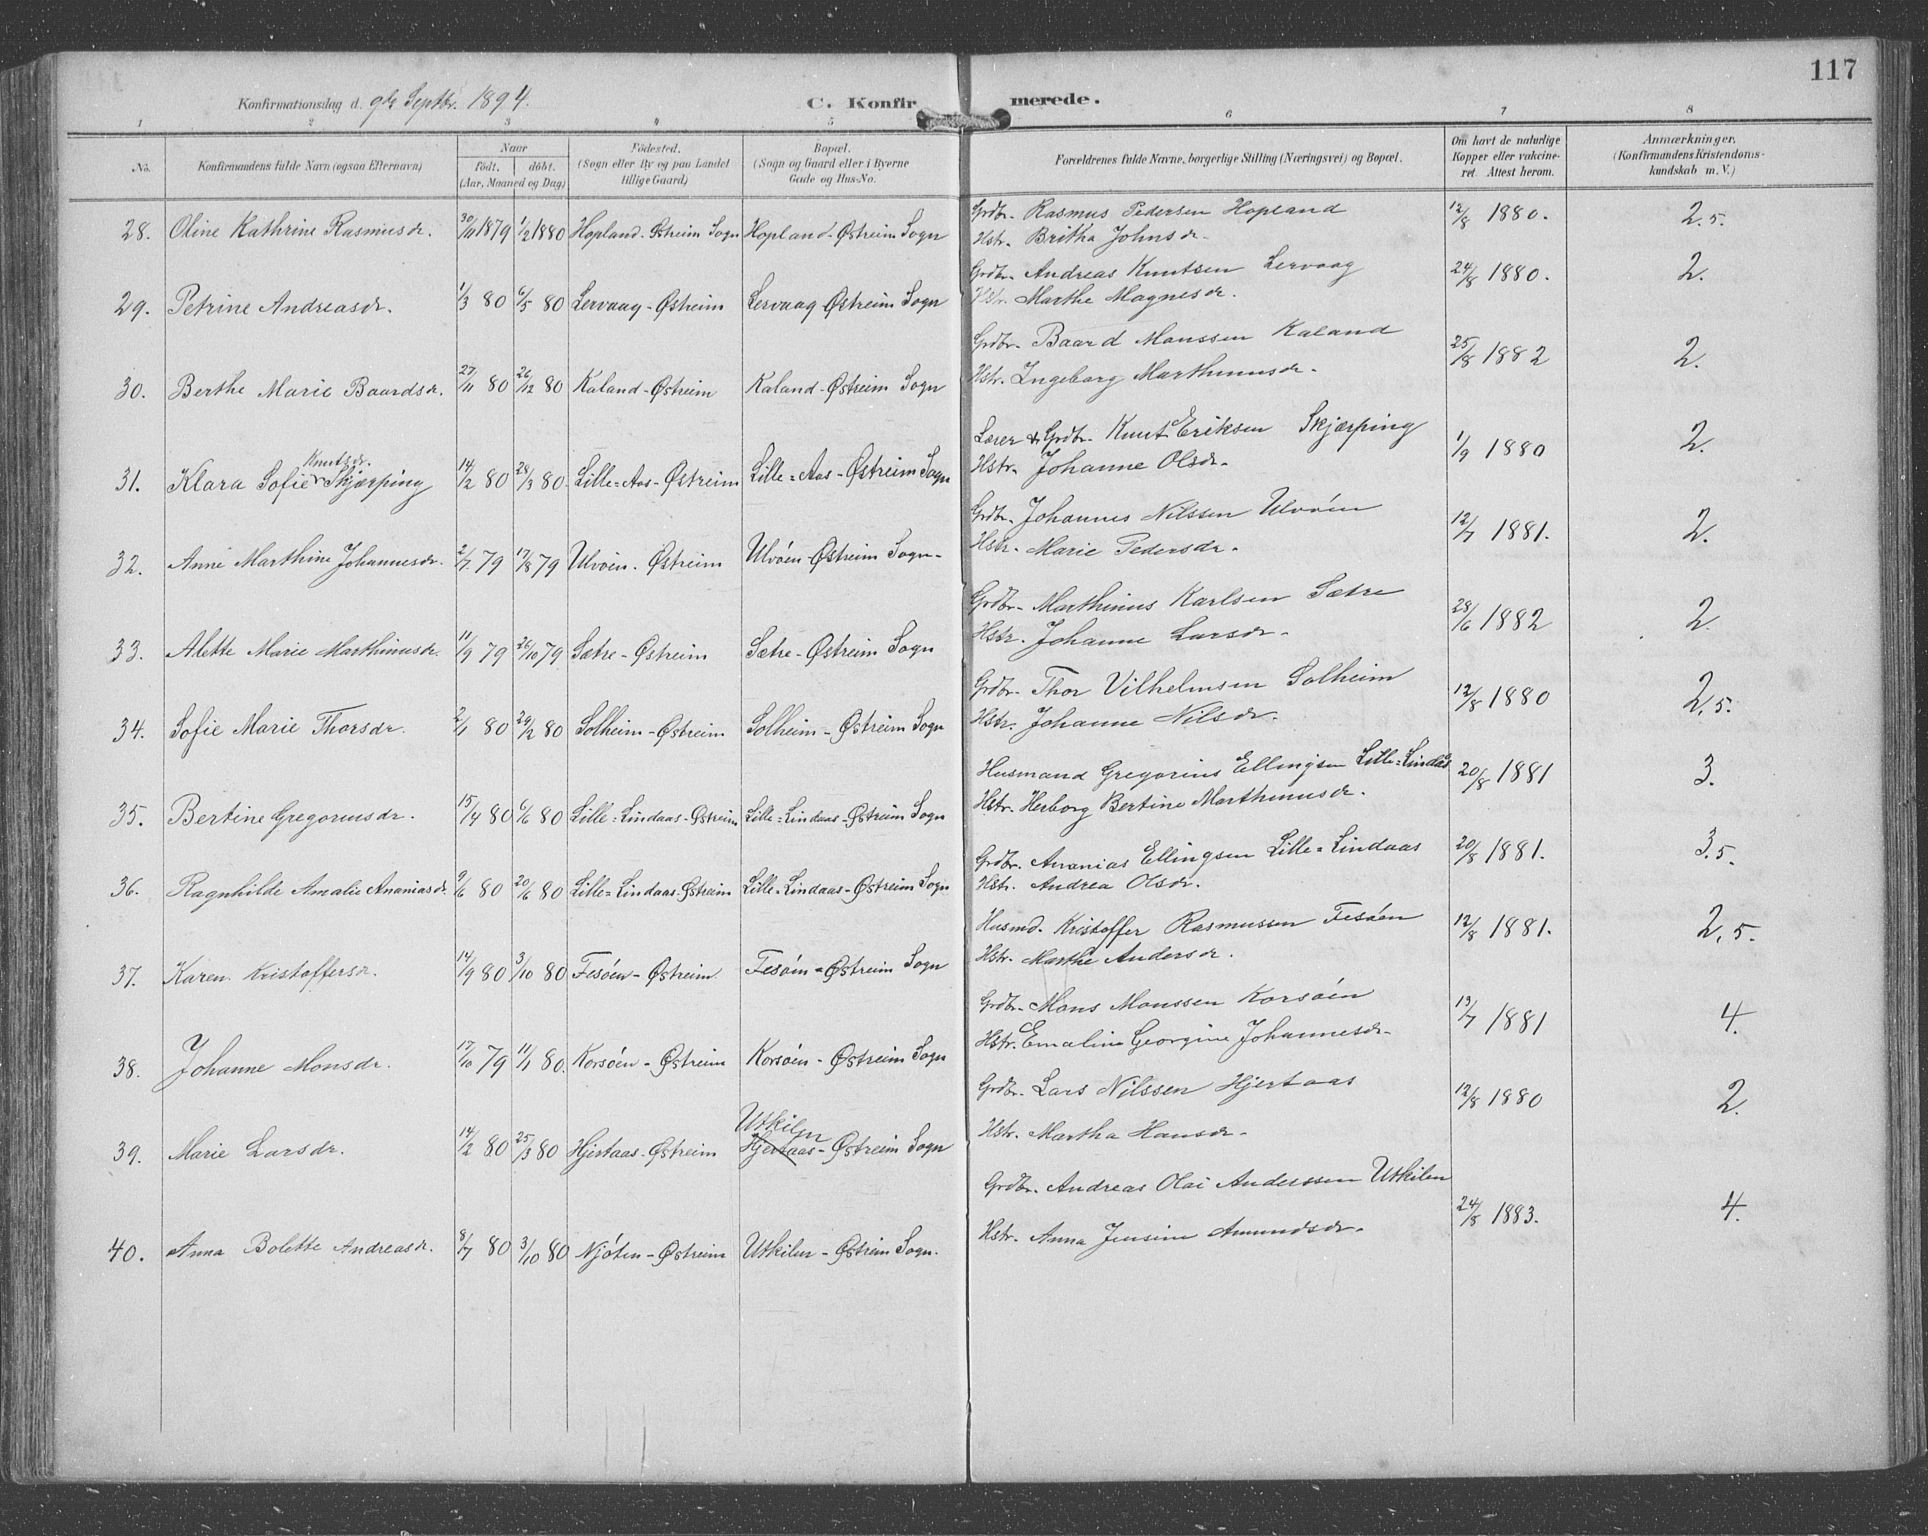 117
Konfirmationsdag d. 9de Septbr. 1894. C. Konfirmerede.
1 2 3 4 5 6 7 8
No. Konfirmandens fulde Navn (ogsaa Efternavn) Naar födt, döbt. (Aar, Maaned og Dag) Födested. (Sogn eller By og paa Landet tillige Gaard) Bopæl. (Sogn og Gaard eller i Byerne Gade og Hus-No. Forældrenes fulde Navne, borgerlige Stilling (Næringsvei) og Bopæl. Om havt de naturlige Kopper eller vakcineret. Attest herom. Anmærkninger. (Konfirmandens Kristendomskundskab m. V.)
28. Oline Kathrine Rasmusdr. 30/11 1879 1/2 1880 Hopland-Østreim Sogn Hopland-Østreim Sogn Grdbr. Rasmus Pedersen Hopland 12/8 1880. 2.5.
Hstr. Britha Johnsdr.
29. Petrine Andreasdr. 1/3 80 6/5 80 Lervaag-Østreim Lervaag Østreim Sogn Grdbr. Andreas Knutsen Lervaag 24/8 1880. 2.
Hstr. Marthe Magnesdr.
30. Berthe Marie Baardsdr. 27/11 80 26/12 80 Kaland-Østreim Kaland-Østreim Sogn Grdbr. Baard Monssen Kaland 25/8 1882 2.
Hstr. Ingeborg Marthinusdr.
31. Klara Sofie Knutsdr. Skjærping 14/2 80 28/3 80. Lille=Aas-Østreim Lille=Aas-Østreim Sogn Lærer & Grdbr. Knut Eriksen Skjærping 1/9 1880 2.
Hstr. Johanne Olsdr.
32. Anne Marthine Johannesdr. 2/7 79 17/8 79 Ulvøen-Østreim Ulvøen-Østreim Sogn. Grdbr. Johannes Nilssen Ulvøen 12/7 1881. 2.
Hstr. Marie Pedersdr.
33. Alette Marie Marthinusdr. 11/9 79 26/10 79 Sætre-Østreim Sætre-Østreim Sogn Grdbr. Marthinus Karlsen Sætre 28/6 1882 2.
Hstr. Johanne Larsdr.
34. Sofie Marie Thorsdr. 2/1 80 29/2 80 Solheim-Østreim Solheim-Østreim Sogn Grdbr. Thor Vilhelmsen Solheim 12/8 1880 2,5.
Hstr. Johanne Nilsdr.
35. Bertine Gregoriusdr. 15/4 80 6/6 80 Lille=Lindaas-Østreim Lille=Lindaas-Østreim Sogn Husmand Gregorius Ellingsen Lille=Lindaas 20/8 1881 3.
Hstr. Herborg Bertine Marthinusdr.
36. Ragnhilde Amalie Ananiasdr. 9/6 80 20/6 80 Lille=Lindaas-Østreim Lille=Lindaas-Østreim Sogn Grdbr. Ananias Ellingsen Lille=Lindaas 20/8 1881. 3.5.
Hstr. Andrea Olsdr.
37. Karen Kristoffersdr. 14/9 80 3/10 80 Fesøen-Østreim Fesøen-Østreim Sogn Husmd. Kristoffer Rasmussen Fesøen 12/8 1881. 2,5.
Hstr. Marthe Andersdr.
38. Johanne Monsdr. 17/10 79 11/1 80. Korsøen-Østreim Korsøen-Østreim Sogn Grdbr. Mons Monssen Korsøen 19/7 1881 4.
Hstr. Emaline Georgine Johannesdr.
39. Marie Larsdr. 14/2 80 25/3 80 Hjertaas-Østreim Utkilen Hjertaas-Østreim Sogn Grdbr. Lars Nilssen Hjertaas 12/8 1880 2.
Hstr. Martha Hansdr.
40. Anna Bolette Andreasdr. 8/7 80 3/10 80 Njøten-Østreim Utkilen-Østreim Sogn. Grdbr. Andreas Olai Anderssen Utkilen 24/8 1883. 4.
Hstr. Anna Jensine Amundsdr.